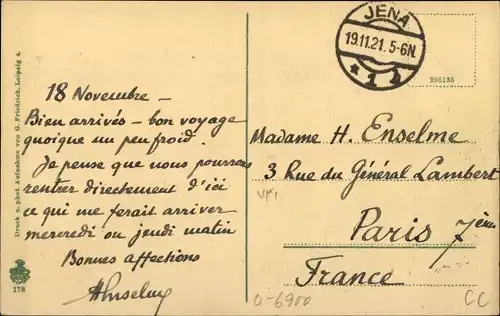 JENA
19.11.21. 5-6N.
* 1 1
295135
18 Novembre -
Bien arrivés - bon voyage
quoique un peu froid.
Je pense que nous pourrons
rentrer directement d'ici
ce qui me ferait arriver
mercredi ou jeudi matin
Bonnes affections
HEnselme
Madame H. Enselme
3 Rue du Général Lambert
Paris 7ème
France
Druck u. phot. Aufnahme von G. Friedrich, Leipzig 4.
178
0-6900
CC